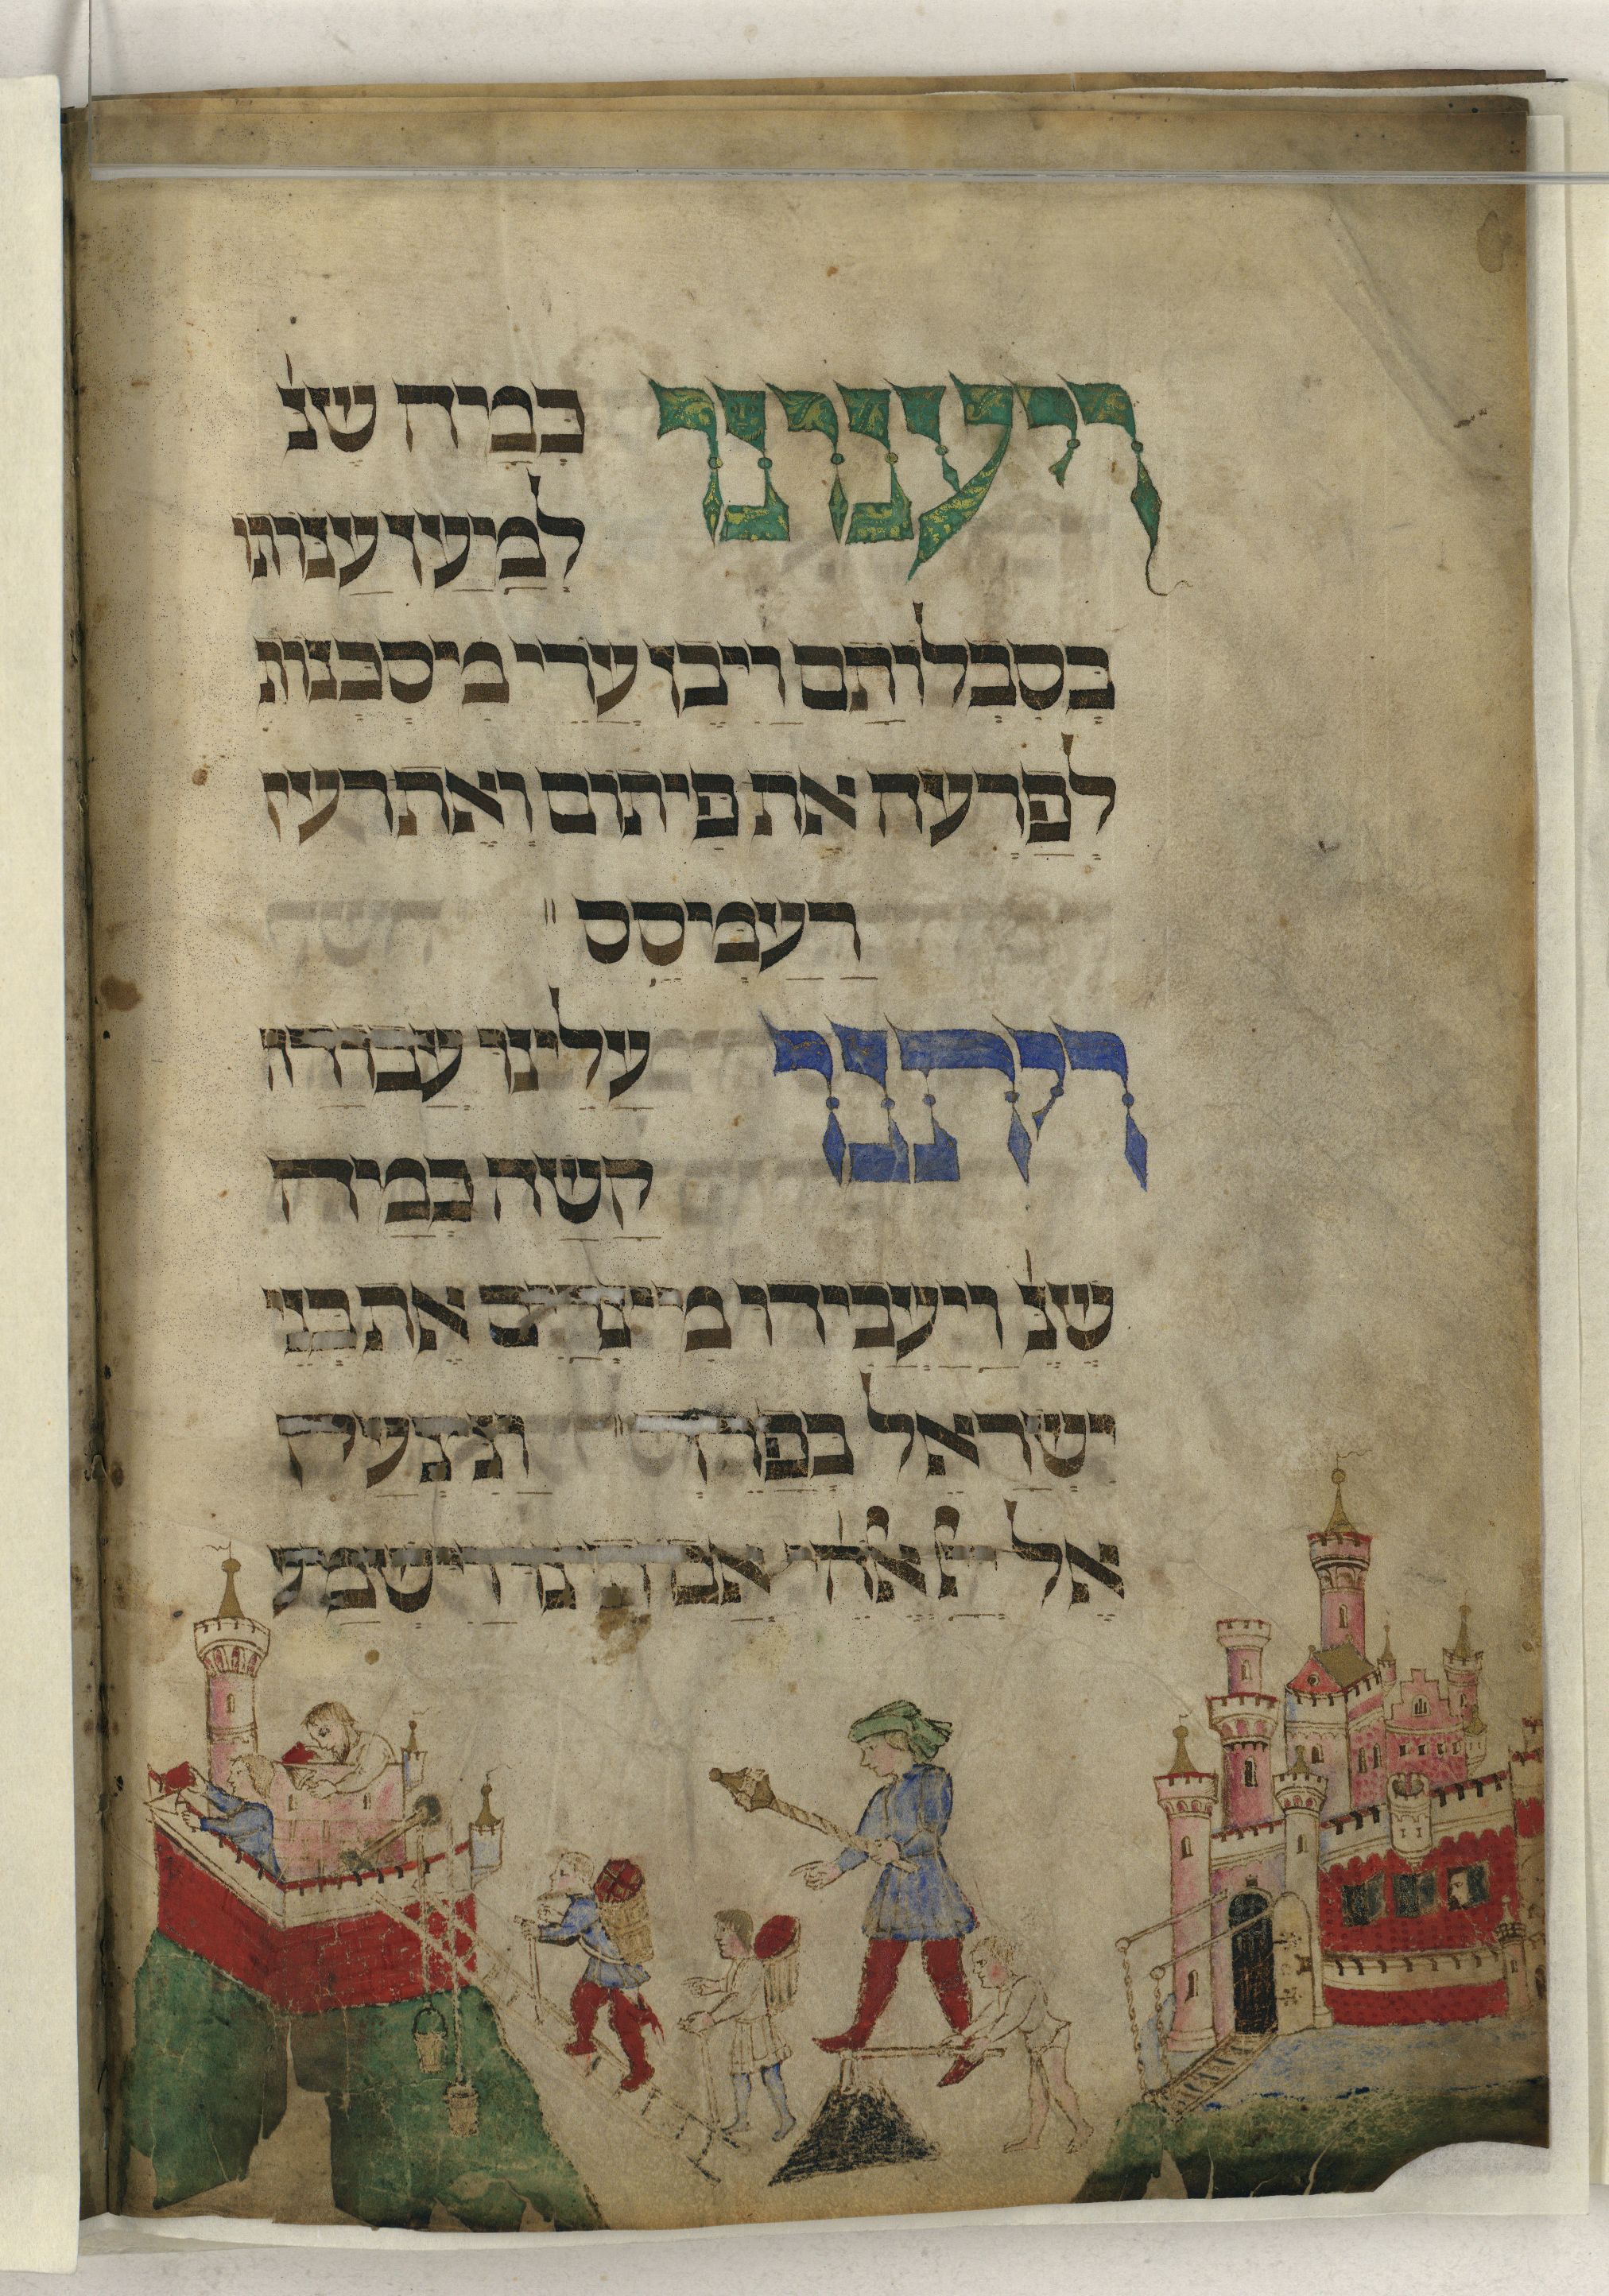 ויענונו כמה שנ'
למען ענותו
בסבלותם ויבן ערי מסכנות
לפרעה את פיתום ואת רעי
רעמסס
ויתנו עלינו עבודה
קשה כמה
שנ' ויעבידו מצרים את בני
ישראל בפרך ונצעק
אל יי אלהי אבותינו וישמע